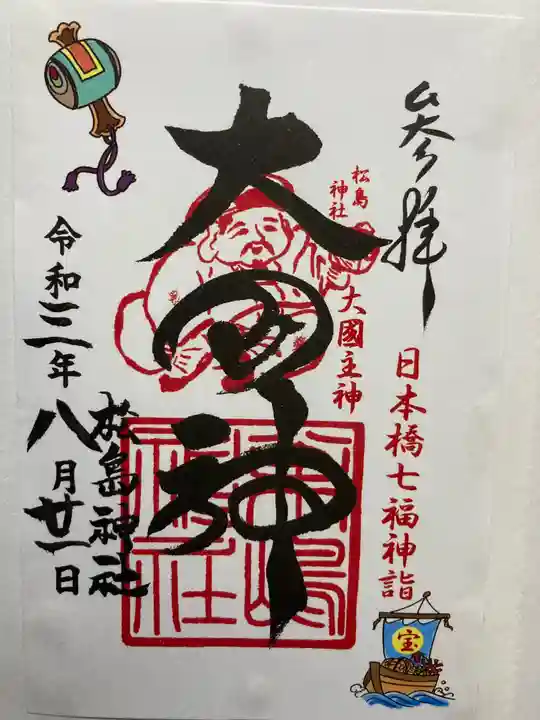 参拝
日本橋七福神詣
松島
神社
大國主神
大黒神
松島神社
令和三年八月廿一日
松島神社
宝